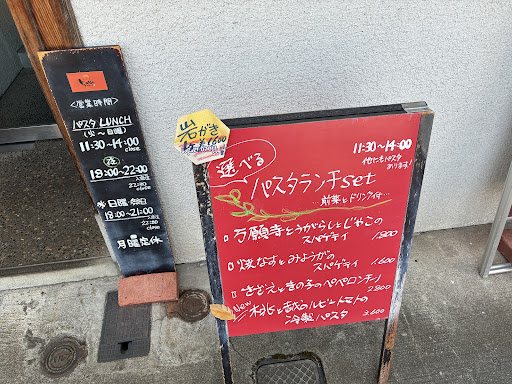 <営業時間>
パスタ LUNCH
(火〜日曜)
11:30〜14:00
夜
18:00〜22:00
日曜
18:00〜21:00
月曜定休
岩がき
選べる
11:30〜14:00
他にもパスタ
あります!
パスタランチset
…前菜とドリンク付…
万願寺とうがらしとじゃこの
スパゲティ 1800
焼なすとみょうがの
スパゲティ 1600
さざえときのこのペペロンチーノ
2800
New
桃と鮎のルビートマトの
冷製パスタ 2600